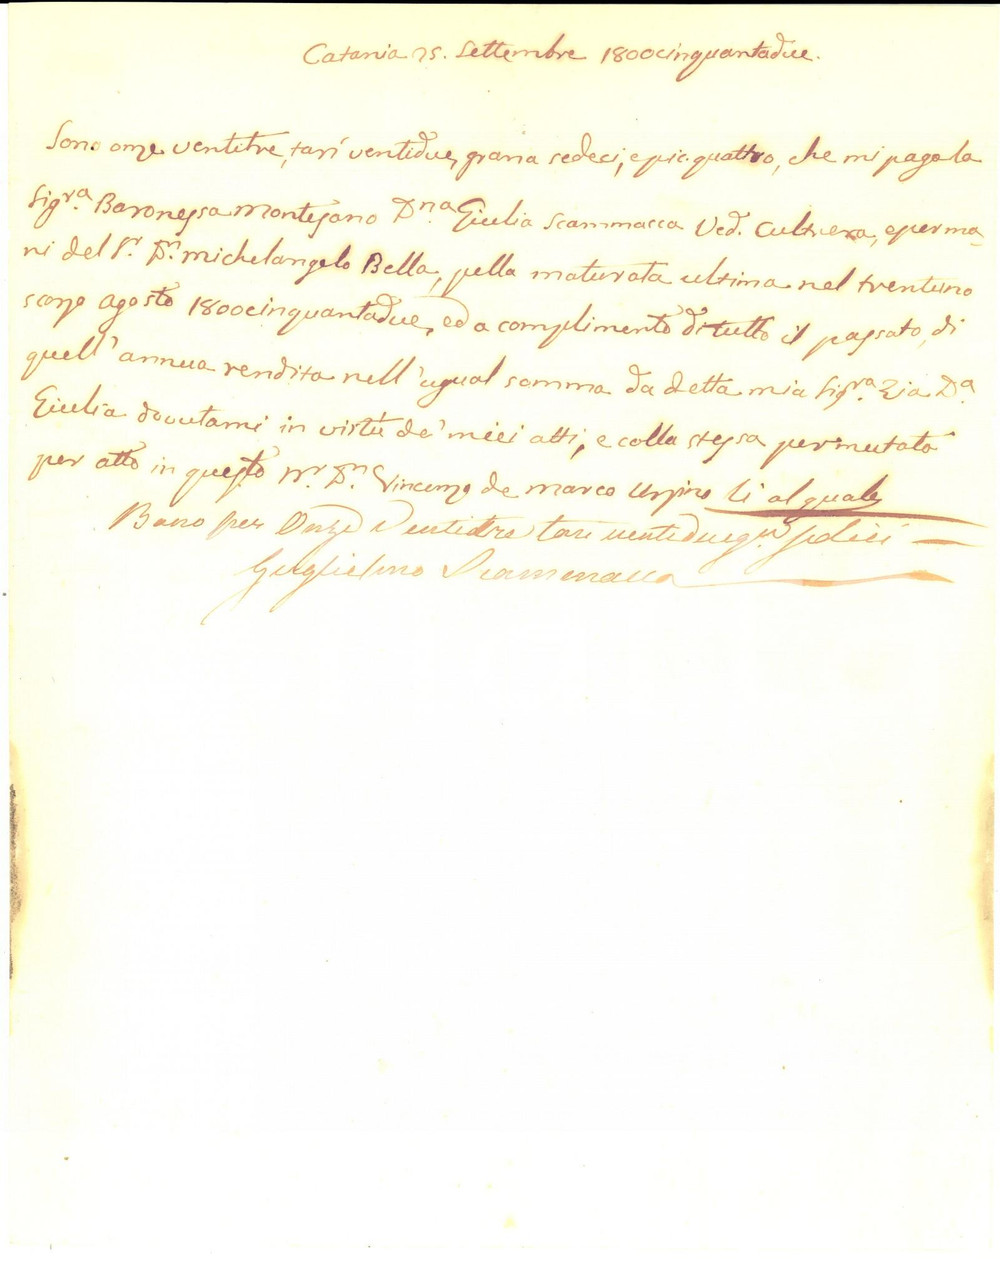 Catania 25. Settembre 1800cinquantadue.
Sono onze ventitre, tarì ventidue, grana sedeci, e pic. quattro, che mi paga la
Sigr.a Baronessa Montesano D.na Giulia Scammacca Ved. Cultrera, e per ma-
ni del S.r D.n Michelangelo Bella, pella maturata ultima nel trentuno
scorzo Agosto 1800cinquantadue, ed a complimento di tutto il passato, di
quell'annua rendita nell'ugual somma da detta mia Sigr.a Zia D.a
Giulia dovutami in virtù de' miei atti, e colla stessa permutata
per atto in questo N.r D.n Vincenzo de Marco Urzino lì al quale
Bono per Onze Ventitre tarì ventidue gr. sedici
Guglielmo Scammacca